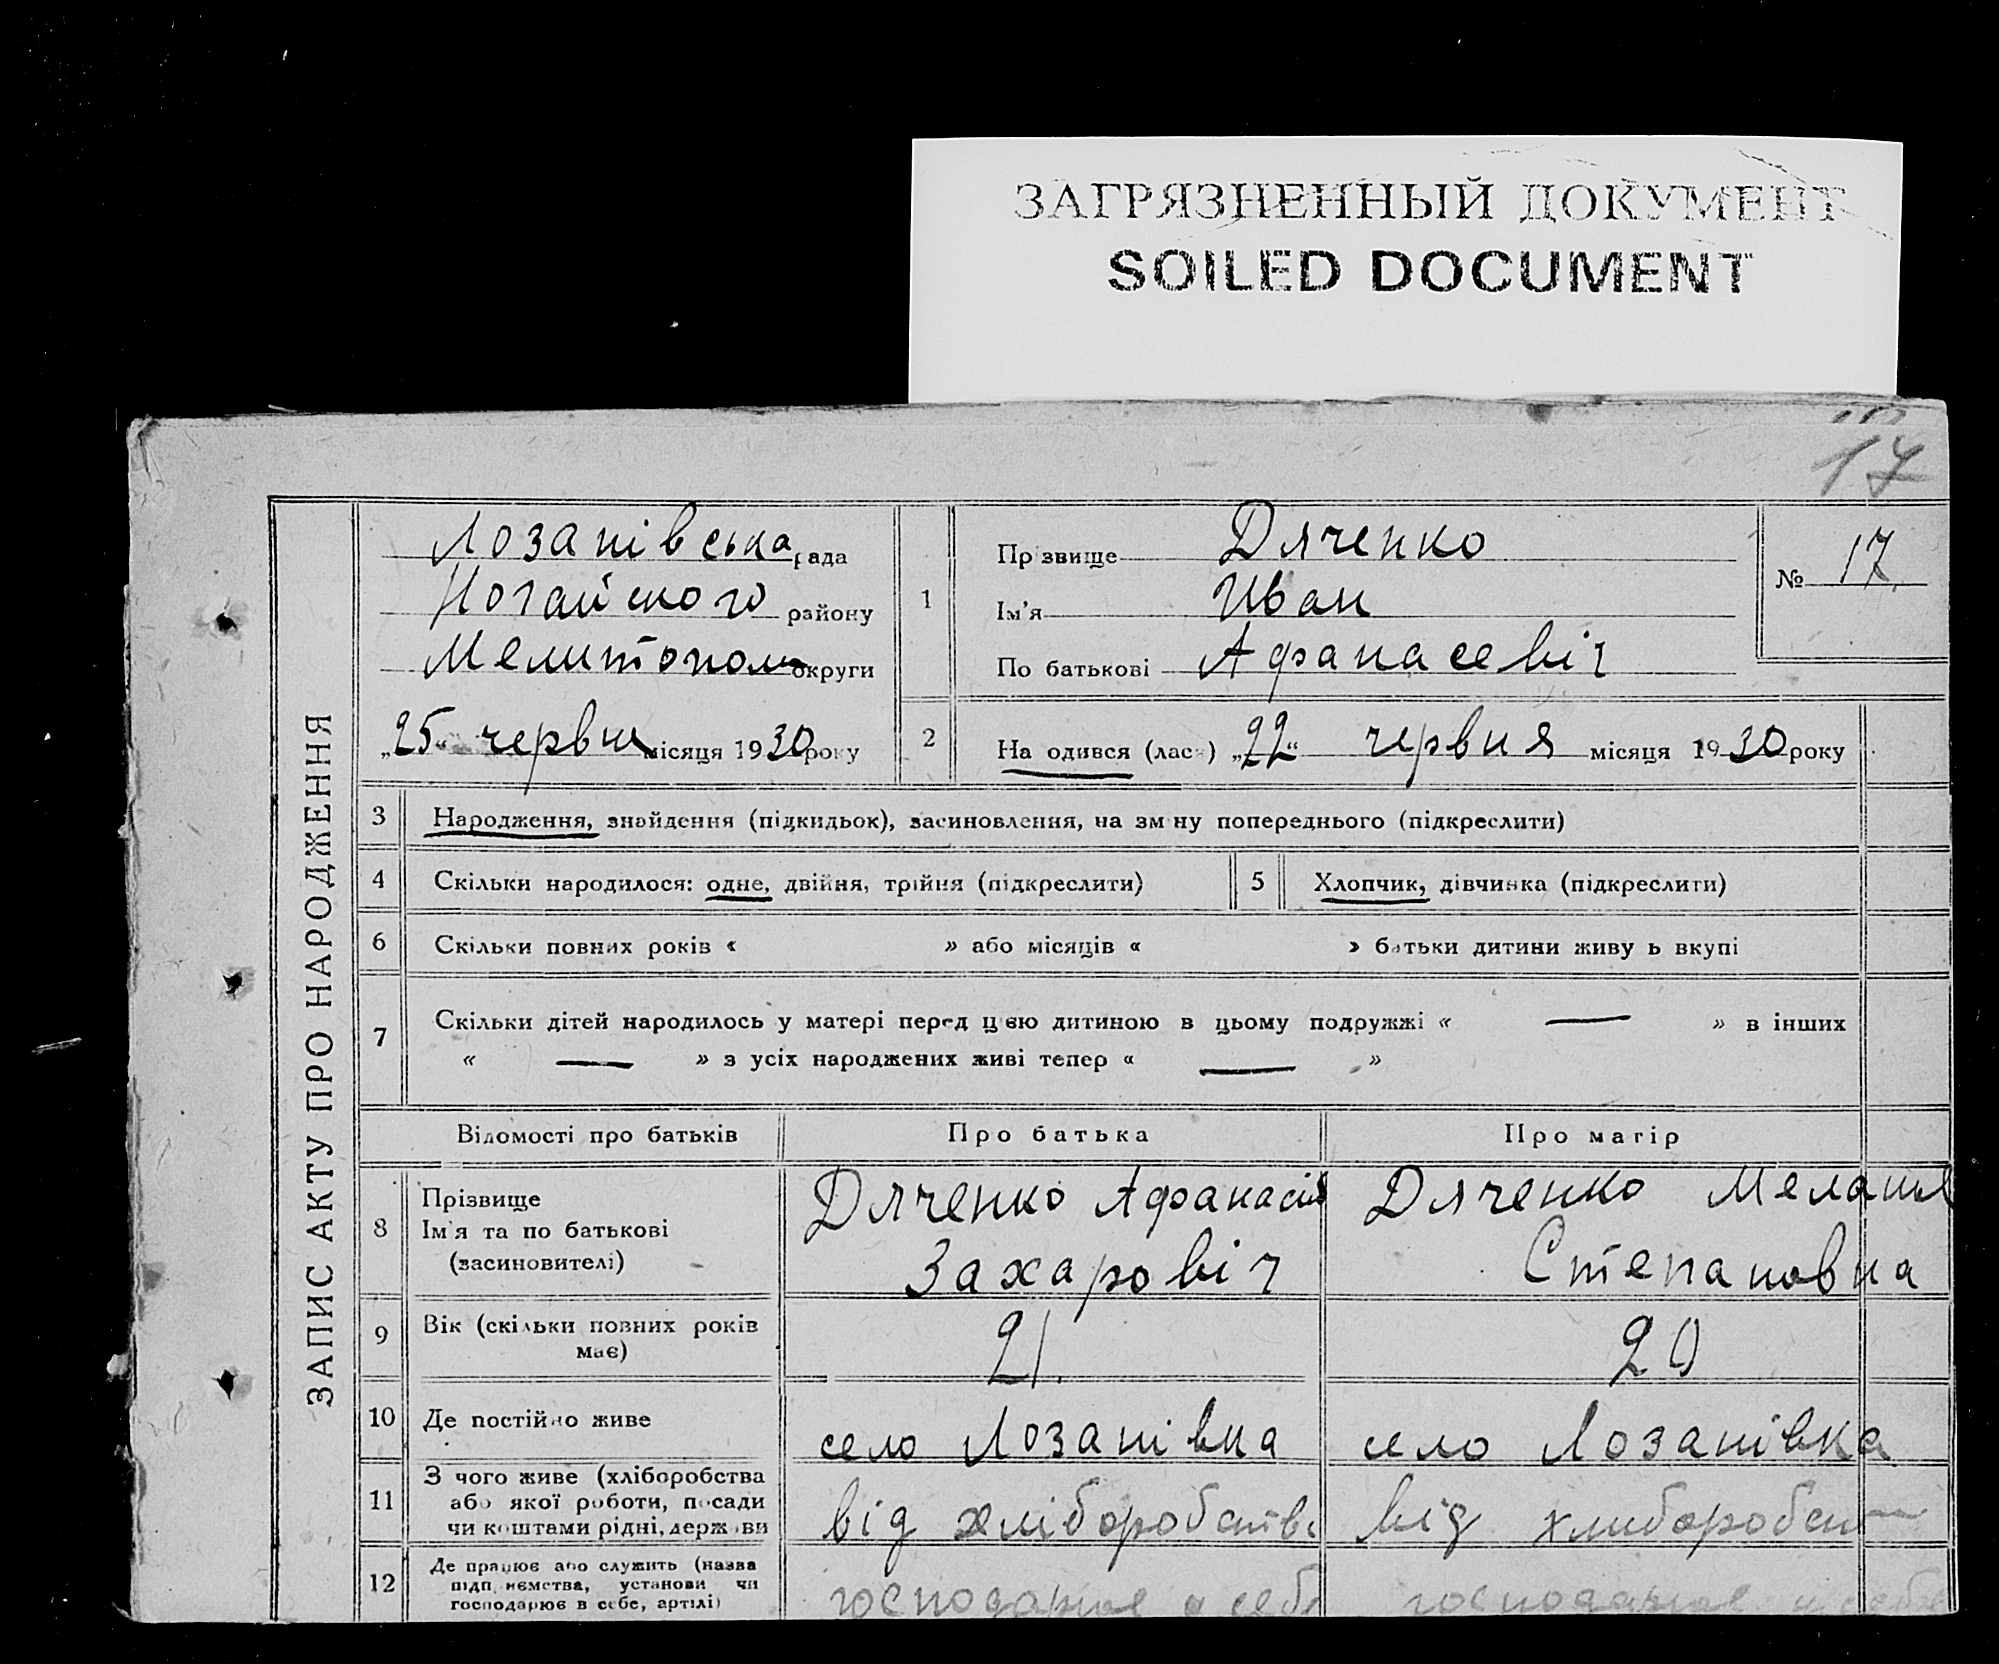 ЗАГРЯЗНЕННЫЙ ДОКУМЕНТ
SOILED DOCUMENT
17
ЗАПИС АКТУ ПРО НАРОДЖЕННЯ
Лозанівська рада
Ногайського району
Мелитопол округи
„25“ червня місяця 1930 року
1
Прізвище Дяченко
Ім'я Иван
По батькові Афанасевіч
№ 17
2
На одився (лась) „22“ червня місяця 1930 року
3 Народження, знайдення (підкидьок), засиновлення, на зміну попереднього (підкреслити)
4 Скільки народилося: одне, двійня, трійня (підкреслити)
5 Хлопчик, дівчинка (підкреслити)
6 Скільки повних років « » або місяців « » батьки дитини живу ь вкупі
7 Скільки дітей народилось у матері перед цією дитиною в цьому подружжі « — » в інших
« — » з усіх народжених живі тепер « — »
Відомості про батьків Про батька Про матір
8 Прізвище
Ім'я та по батькові
(засиновителі)
Дяченко Афанасій
Захаровіч
Дяченко Мелашя
Степановна
9 Вік (скільки повних років
має)
21.
20
10 Де постійно живе село Лозанівка село Лозанівка
11 З чого живе (хліборобства
або якої роботи, посади
чи коштами рідні, держави
від хліборобства
від хлиборобст
12 Де працює або служить (назва
підприємства, установи чи
господарює в себе, артілі)
господарює в себе
господарює в себе